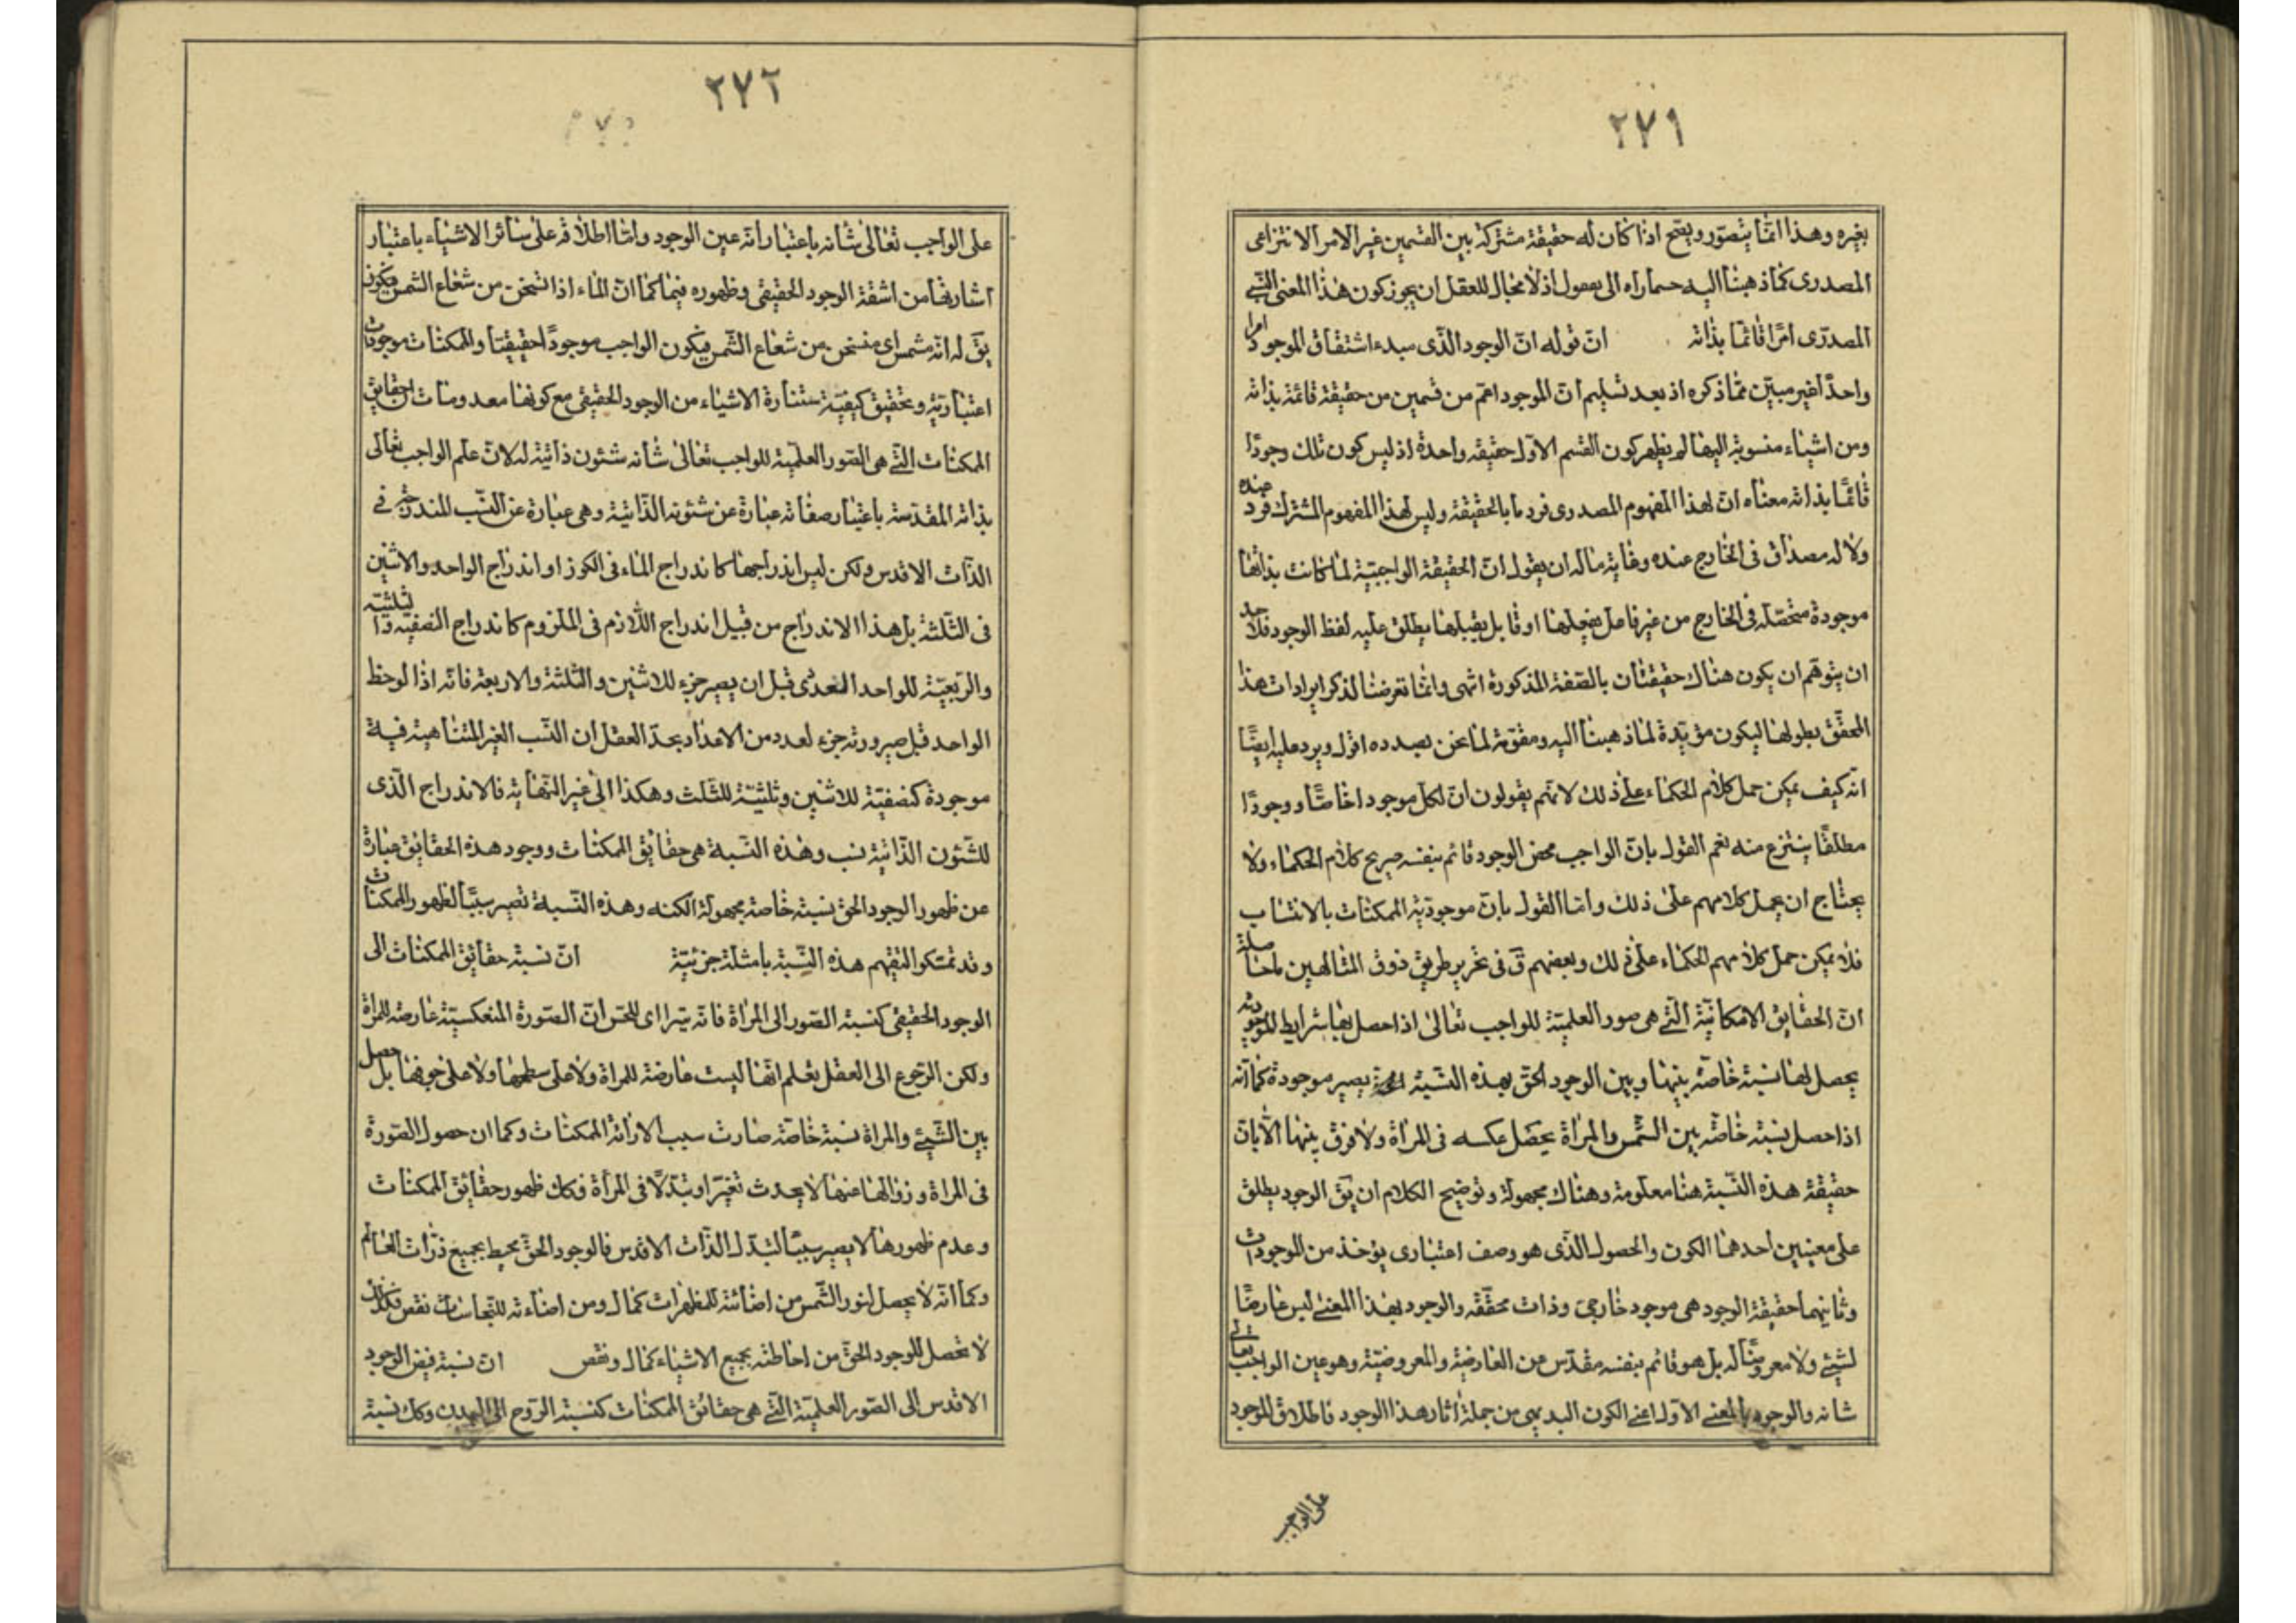 ٢٧١
بغيره وهذا انما يتصور ويصح اذا كان له حقيقة مشتركة بين القسمين غير الامر الانتزاعى
المصدرى كما ذهبنا اليه حسما راه الى بعقول اذ لا مجال للعقل ان يجوز كون هذا المعنى النسبى
المصدرى امرا قائما بذاته ان قوله ان الوجود الذى مبدء اشتقاق الموجود امرا
واحدا غير مبين مما ذكره اذ بعد تسليم ان الموجود اعم من قسمين من حقيقة قائمة بذاته
ومن اشياء منسوبة اليها لم يظهر كون القسم الاول حقيقة واحدة اذ ليس كون تلك وجودا
قائما بذاته معناه ان لهذا المفهوم المصدرى فرد ما بالحقيقة وليس لهذا المفهوم المشترك فرد عنده
ولا له مصداق فى الخارج عنده وغاية ماله ان يقول ان الحقيقة الواجبية لما كانت بذاتها
موجودة متحصلة فى الخارج من غير فاعل يفعلها او قابل يقبلها يطلق عليه لفظ الوجود فلاحد
ان يتوهم ان يكون هناك حقيقتان بالصفة المذكورة انتهى وانما تعرضنا لذكر ايرادات هذا
المحقق بطولها ليكون مؤيدة لما ذهبنا اليه ومقومة لما نحن بصدده اقول ويرد عليه ايضا
انه كيف يمكن حمل كلام الحكماء على ذلك لانهم يقولون ان لكل موجود خاصا ووجودا
مطلقا ينتزع منه نعم القول بان الواجب محض الوجود قائم بنفسه صريح كلام الحكماء ولا
يحتاج ان يحمل كلامهم على ذلك واما القول بان موجودية الممكنات بالانتساب
فلا يمكن حمل كلامهم الحكماء على ذلك وبعضهم ق فى تحرير طريق ذوق المتالهين ما حاصله
ان الحقايق الامكانية التى هى صور العلمية للواجب تعالى اذا حصل بها شرايط الموجودية
يحصل لها نسبة خاصة بينها وبين الوجود الحق بهذه النسبة يصير موجودة كما انه
اذا حصل نسبة خاصة بين الشمس والمراة يحصل عكسه فى المراة ولا فرق بينها الا بان
حقيقة هذه النسبة هنا معلومة وهناك مجهولة وتوضيح الكلام ان يق الوجود يطلق
على معنيين احدهما الكون والحصول الذى هو وصف اعتبارى يؤخذ من الموجودات
وثانيهما حقيقة الوجود هى موجود خارجى وذات محققه والوجود بهذا المعنى ليس عارضا
لشيئ ولا معروضا له بل هو قائم بنفسه مقدس من العارضية والمعروضية وهو عين الواجب تعالى
شانه والوجود بالمعنى الاول اعنى الكون البديهى من جملة اثار هذا الوجود فاطلاق الموجود
على الواجب
٢٧٢
على الواجب تعالى شانه باعتبار انه عين الوجود واما اطلاقه على سائر الاشياء باعتبار
من اشقة الوجود الحقيقى وظهوره فيها كما ان الماء اذا تسخن من شعاع الشمس فيكون
يق له انه مشمس اى متسخن من شعاع الشمس فيكون الواجب موجودا حقيقيا والممكنات موجودات
اعتبارية وتحقيق كيفية ستنارة الاشياء من الوجود الحقيقى مع كونها معدومات ان حقايق
الممكنات التى هى الصور العلمية للواجب تعالى شانه شئون ذاتية له لان علم الواجب تعالى
بذاته المقدسة باعتبار صفاته عبارة عن شئونه الذاتية وهى عبارة عن النسب المندرجة فى
الذات الاقدس ولكن ليس اندراجها كاندراج الماء فى الكوز او اندراج الواحد والاثنين
فى الثلثة بل هذا الاندراج من قبيل اندراج اللازم فى الملزوم كاندراج النصفية والثلثية
والربعية للواحد العددى قبل ان يصير جزء للاثنين والثلثة والاربعة فانه اذا لوحظ
الواحد قبل صيرورته جزء لعدد من الاعداد يجد العقل ان النسب الغير المتناهية فيه
موجودة كنصفية للاثنين وثلثية للثلث وهكذا الى غير النهاية فالاندراج الذى
للشئون الذاتية نسب وهذه النسبة هى حقائق الممكنات ووجود هذه الحقائق عبارة
عن ظهور الوجود الحق نسبة خاصة مجهولة الكنه وهذه النسبة تصير سببا لظهور الممكنات
وقد تمسكوا لتفهم هذه النسبة بامثلة جزئية ان نسبة حقائق الممكنات الى
الوجود الحقيقى كنسبة الصور الى المراة فانه يترااى للحس ان الصورة المنعكسية عارضة للمراة
ولكن الرجوع الى العقل يعلم انها ليست عارضة للمراة ولا على سطحها ولا على جوفها بل حصل
بين الشيئ والمراة نسبة خاصة صارت سبب الاراتة الممكنات وكما ان حصول الصورة
فى المراة وزوالها عنها لا يحدث تغيرا وتبدلا فى المراة فكك ظهور حقائق الممكنات
وعدم ظهورها لا يصير سببا لتبدل الذات الاقدس فالوجود الحق محيط بجميع ذرات العالم
وكما انه لا يحصل لنور الشمس من اضائته للمظهرات كمال ومن اضاءته للنجاسات نقص فكذلك
لا تحصل للوجود الحق من احاطته بجميع الاشياء كمال ونقص ان نسبة فيض الوجود
الاقدس الى الصور العلمية التى هى حقائق الممكنات كنسبة الروح الى البدن وكك نسبة